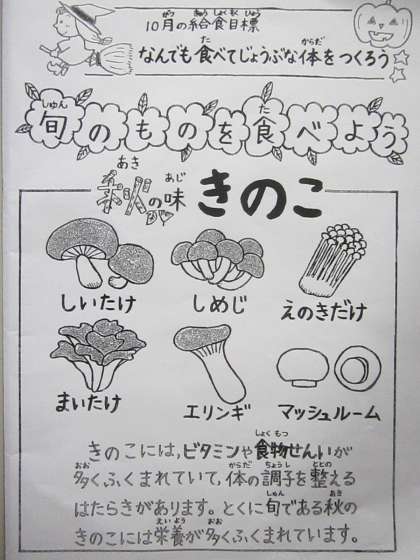 10月の給食目標
なんでも食べてじょうぶな体をつくろう
旬のものを食べよう
秋の味 きのこ
しいたけ
しめじ
えのきだけ
まいたけ
エリンギ
マッシュルーム
きのこには,ビタミンや食物せんいが
多くふくまれていて,体の調子を整える
はたらきがあります。とくに旬である秋の
きのこには栄養が多くふくまれています。